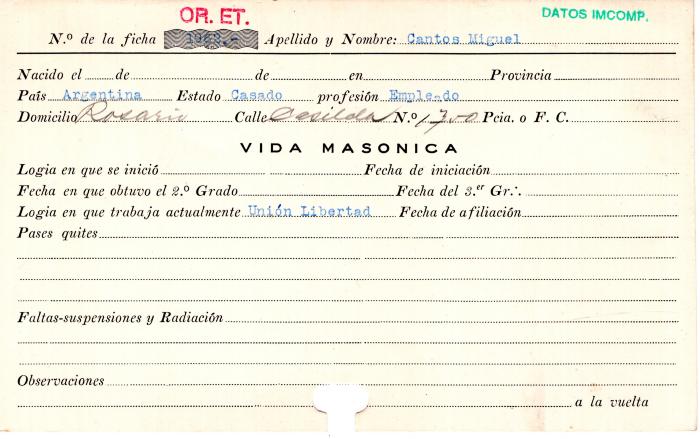 OR. ET.
DATOS IMCOMP.
N.º de la ficha Apellido y Nombre: Cantos Miguel
Nacido el de de en Provincia
País Argentina Estado Casado profesión Empleado
Domicilio Rosario Calle Casilda N.º 1700 Pcia. o F. C.
VIDA MASONICA
Logia en que se inició Fecha de iniciación
Fecha en que obtuvo el 2.º Grado Fecha del 3.er Gr∴
Logia en que trabaja actualmente Unión Libertad Fecha de afiliación
Pases quites
Faltas-suspensiones y Radiación
Observaciones
a la vuelta